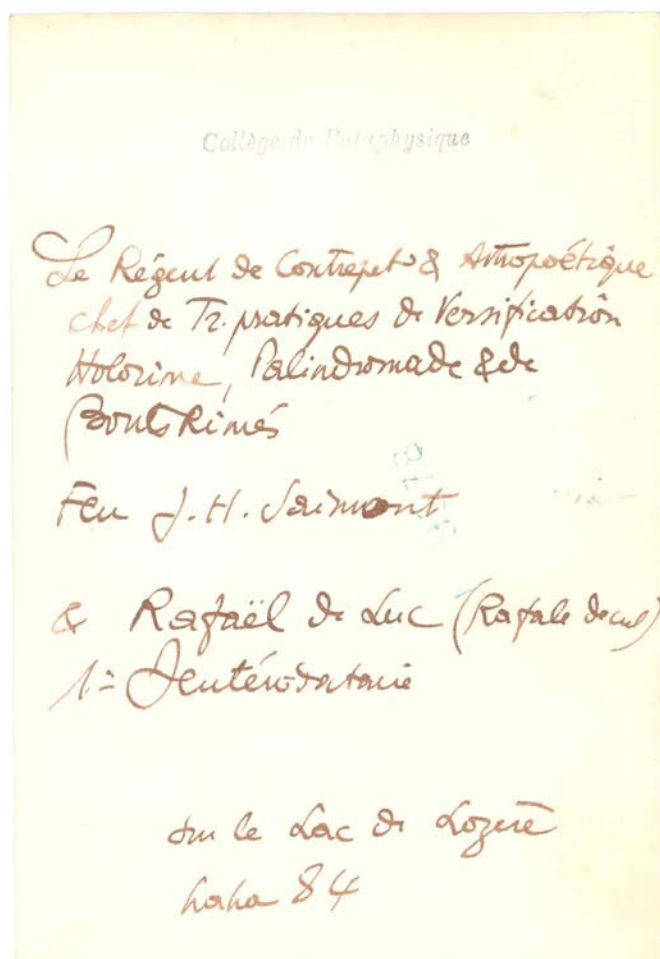 Collège de 'Pataphysique
Le Régent de Contrepet & Astropoétique
chef de Tr. pratiques de Versification
Holorime, Palindromade & de
Bouts Rimés
Feu J. H. Sainmont
& Rafaël de Luc (Rafale de cul)
1er Deutérodataire
sur le Lac de Lozère
haha 84